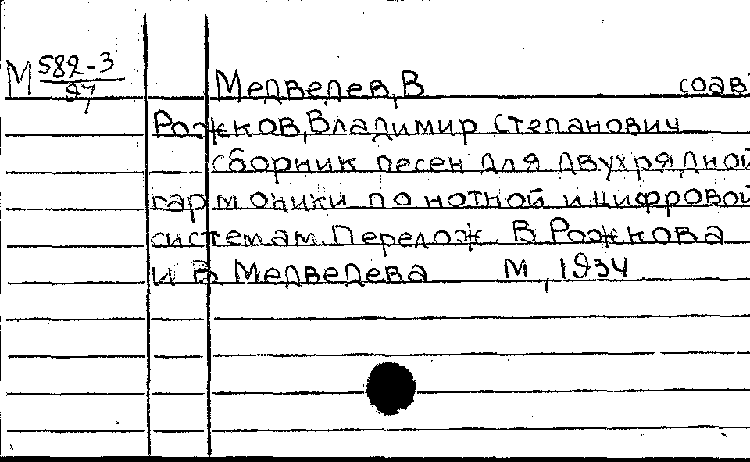 М 582-3/87 Медведев, В соав
Рожков, Владимир Степанович
Сборник песен для двухрядной
гармоники по нотной и цифровой
системам. Перелож. В. Рожкова
и В. Медведева М, 1934